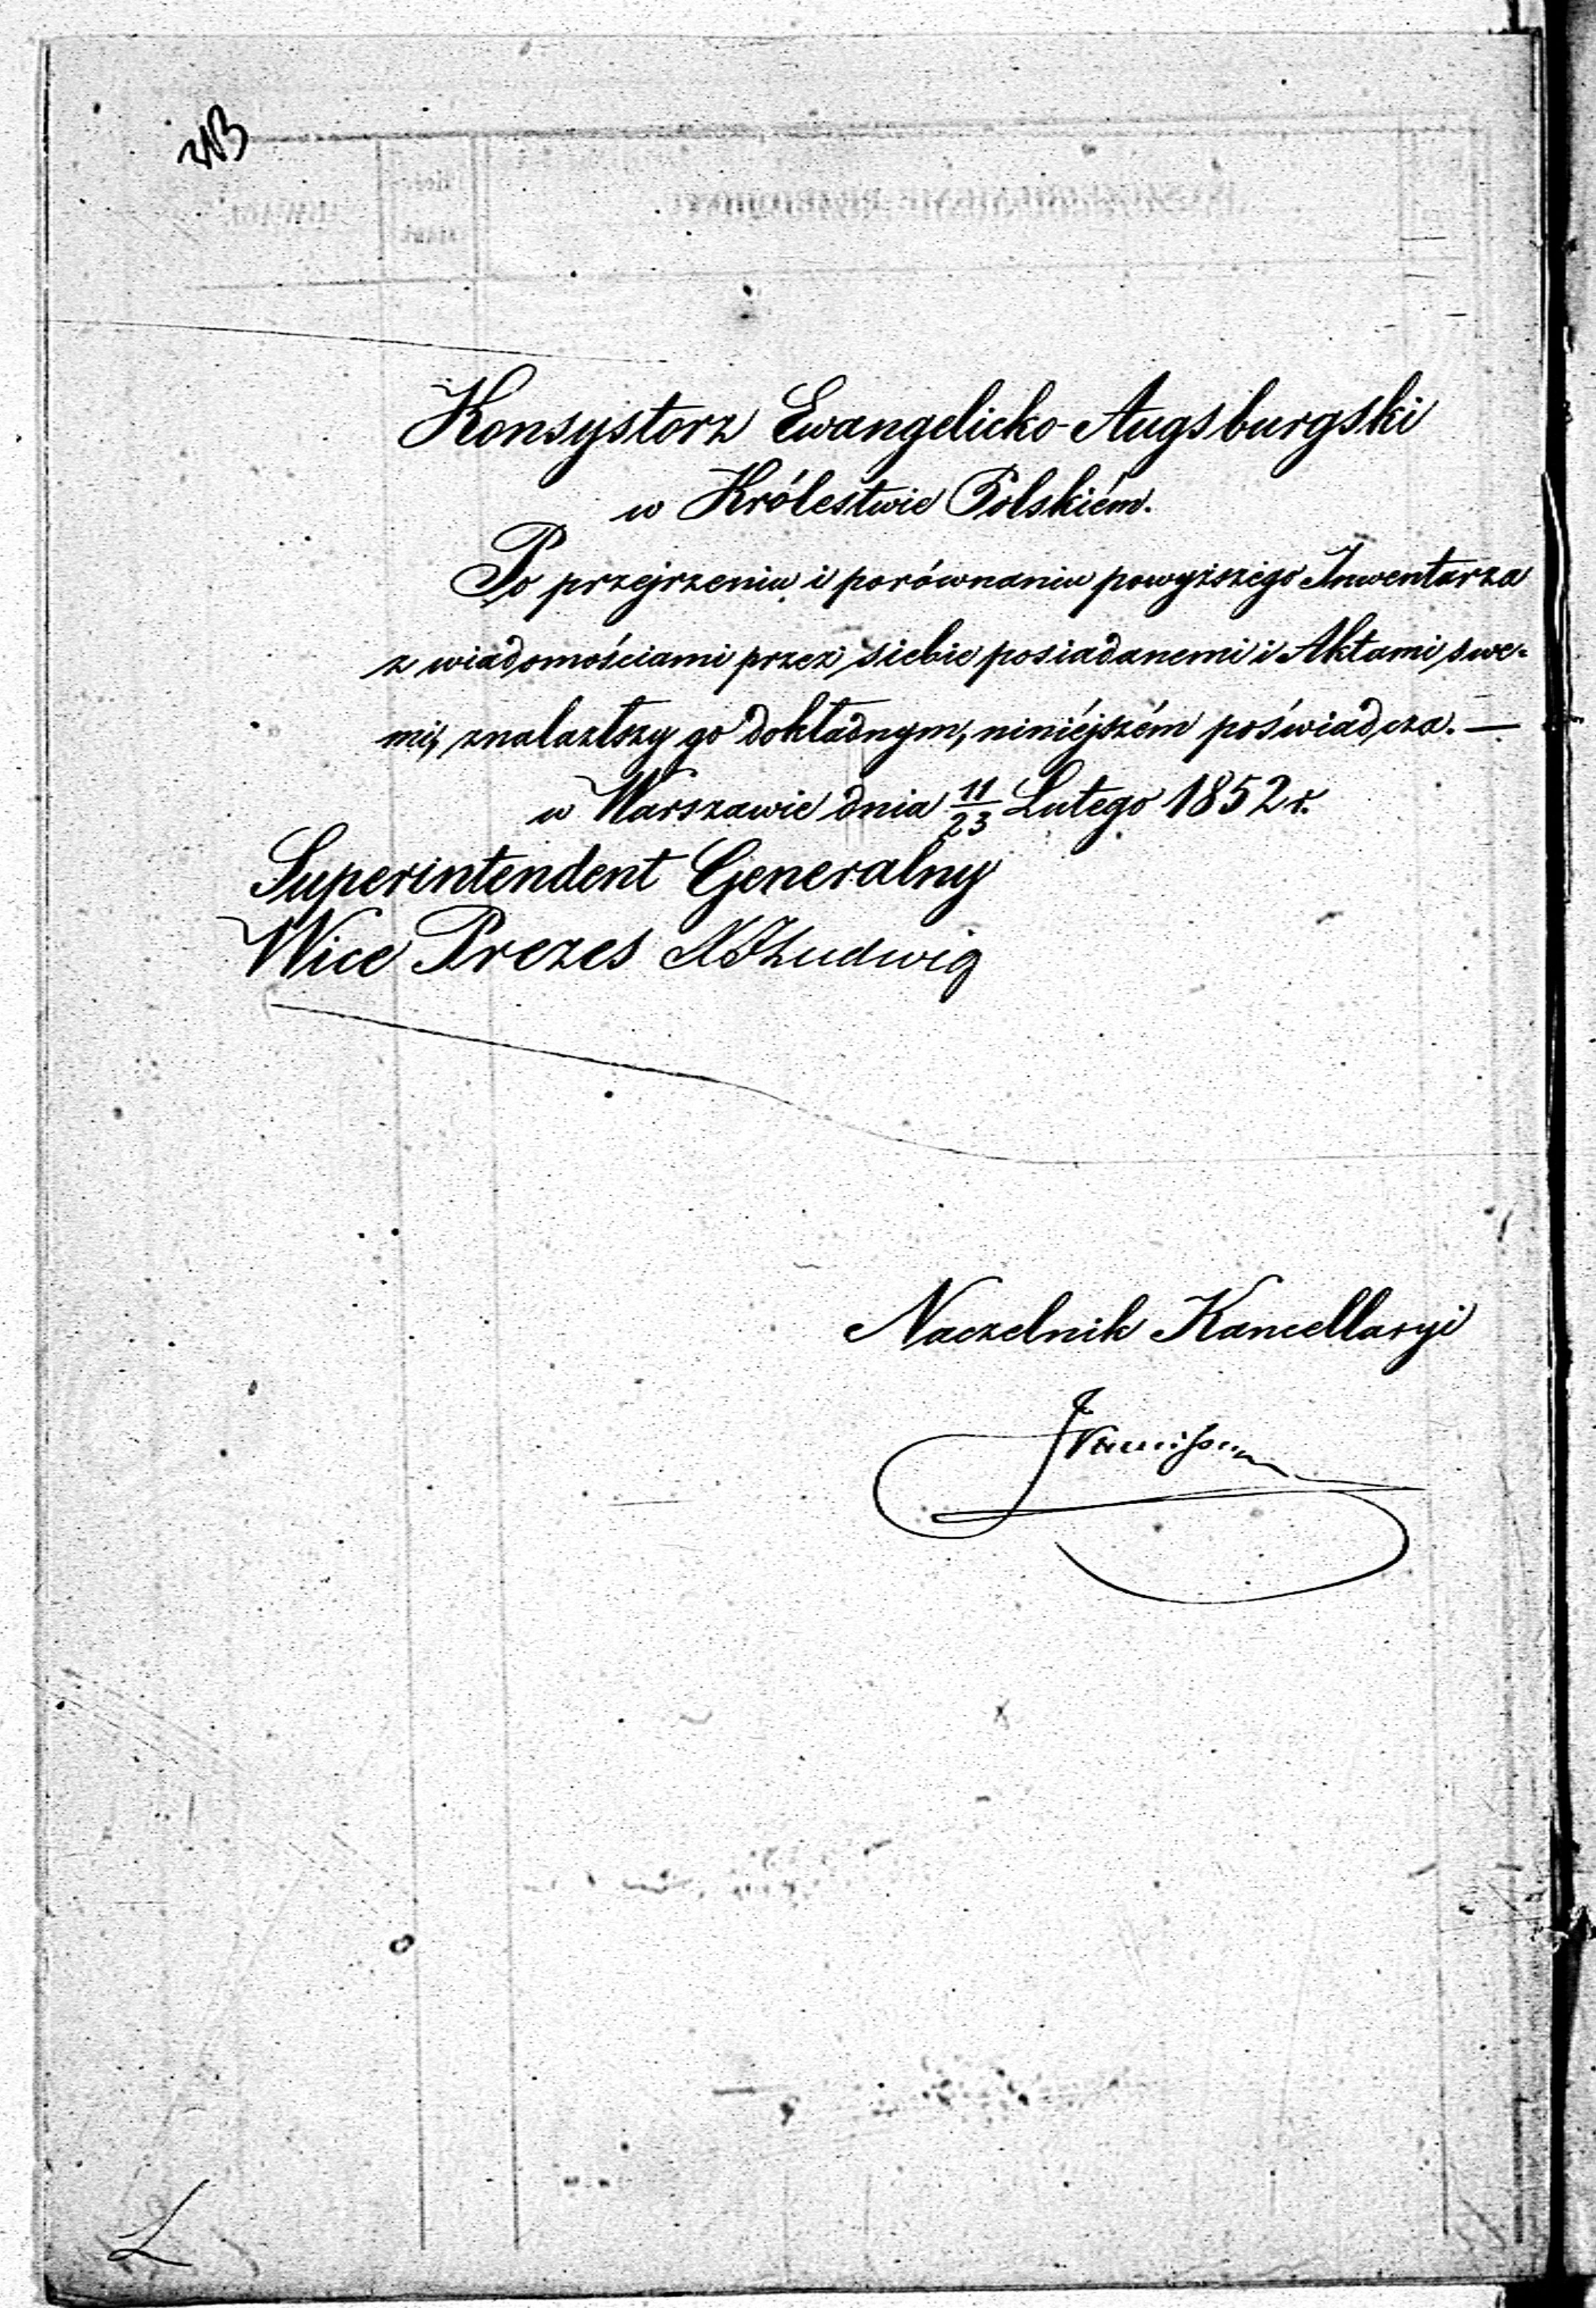 Konsystorz Ewangelicko-Augsburgski
w Królestwie Polskiém.
Po przejrzeniu i porównaniu powyższego Inwentarza
z wiadomościami przez siebie posiadanemi i Aktami swe-
mi, znalazłszy go dokładnym, niniéjszém poświadcza. —
w Warszawie dnia 11/23 Lutego 1852 r.
Superintendent Generalny
Wice Prezes Ludwig
Naczelnik Kancellaryi